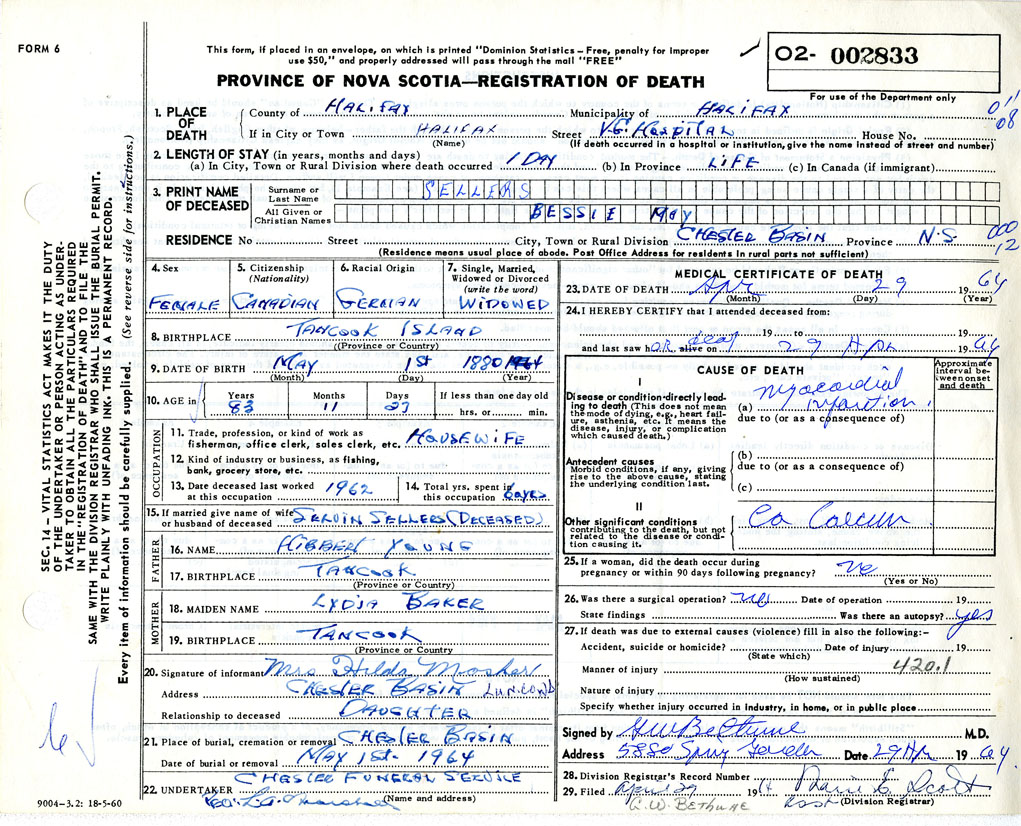 FORM 6
This form, if placed in an envelope, on which is printed "Dominion Statistics – Free, penalty for improper
use $50," and properly addressed will pass through the mail "FREE"
PROVINCE OF NOVA SCOTIA—REGISTRATION OF DEATH
02- 002833
For use of the Department only
011
08
1. PLACE OF DEATH
County of HALIFAX Municipality of HALIFAX
If in City or Town HALIFAX Street V.G. HOSPITAL House No.
(Name) (If death occurred in a hospital or institution, give the name instead of street and number)
2. LENGTH OF STAY (in years, months and days)
(a) In City, Town or Rural Division where death occurred 1 DAY (b) In Province LIFE (c) In Canada (if immigrant)
3. PRINT NAME OF DECEASED
Surname or Last Name SELLERS
All Given or Christian Names BESSIE MAY
RESIDENCE No Street City, Town or Rural Division CHESTER BASIN Province N.S
(Residence means usual place of abode. Post Office Address for residents in rural parts not sufficient)
000
12
4. Sex 5. Citizenship (Nationality) 6. Racial Origin 7. Single, Married, Widowed or Divorced (write the word)
FEMALE CANADIAN GERMAN WIDOWED
8. BIRTHPLACE TANCOOK ISLAND
((Province or Country)
9. DATE OF BIRTH MAY 1st 1880
(Month) (Day) (Year)
10. AGE in Years Months Days If less than one day old
83 11 27 hrs. or min.
OCCUPATION
11. Trade, profession, or kind of work as
fisherman, office clerk, sales clerk, etc. HOUSEWIFE
12. Kind of industry or business, as fishing,
bank, grocery store, etc.
13. Date deceased last worked at this occupation 1962
14. Total yrs. spent in this occupation
15. If married give name of wife
or husband of deceased SELVIN SELLERS (DECEASED)
FATHER
16. NAME HIBBERT YOUNG
17. BIRTHPLACE TANCOOK
(Province or Country)
MOTHER
18. MAIDEN NAME LYDIA BAKER
19. BIRTHPLACE TANCOOK
(Province or Country
20. Signature of informant Mrs Hilda Mosher
Address CHESTER BASIN LUN. CO.
Relationship to deceased DAUGHTER
21. Place of burial, cremation or removal CHESTER BASIN
Date of burial or removal MAY 1st. 1964
CHESTER FUNERAL SERVICE
22. UNDERTAKER
(Name and address)
9004–3.2: 18-5-60
MEDICAL CERTIFICATE OF DEATH
23. DATE OF DEATH Apr 29 1964
(Month) (Day) (Year)
24. I HEREBY CERTIFY that I attended deceased from:
19 to 19
and last saw h alive on 29 Apr 1964
dead
CAUSE OF DEATH
Approximate interval between onset and death
I
Disease or condition directly leading to death (This does not mean the mode of dying, e.g., heart failure, asthenia, etc. It means the disease, injury, or complication which caused death.)
(a) Myocardial Infarction
due to (or as a consequence of)
Antecedent causes
Morbid conditions, if any, giving rise to the above cause, stating the underlying condition last.
(b)
due to (or as a consequence of)
(c)
II
Other significant conditions
contributing to the death, but not related to the disease or condition causing it.
Ca
25. If a woman, did the death occur during
pregnancy or within 90 days following pregnancy? No
(Yes or No)
26. Was there a surgical operation? No Date of operation 19
State findings Was there an autopsy? yes
27. If death was due to external causes (violence) fill in also the following:–
Accident, suicide or homicide? Date of injury 19
(State which)
Manner of injury 420.1
(How sustained)
Nature of injury
Specify whether injury occurred in industry, in home, or in public place
Signed by GW Bethune M.D.
Address 5880 Spring Garden Date 29 Apr 1964
28. Division Registrar's Record Number
29. Filed April 29 19
(Division Registrar)
G.W. BETHUNE
SEC. 14 – VITAL STATISTICS ACT MAKES IT THE DUTY
OF THE UNDERTAKER OR PERSON ACTING AS UNDER-
TAKER TO OBTAIN ALL THE PARTICULARS REQUIRED
IN THE "REGISTRATION OF DEATH" AND TO FILE THE
SAME WITH THE DIVISION REGISTRAR WHO SHALL ISSUE THE BURIAL PERMIT.
WRITE PLAINLY WITH UNFADING INK. THIS IS A PERMANENT RECORD.
Every item of information should be carefully supplied. (See reverse side for instructions.)